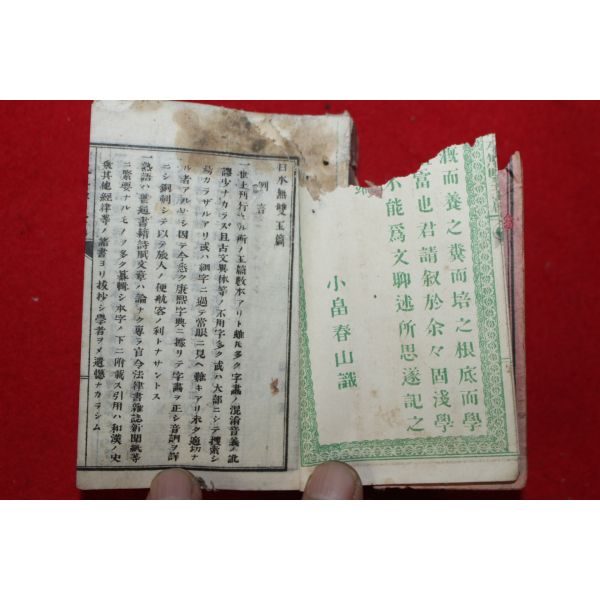 漑而養之糞而培之根底而學
富也君請叙於余々固淺學
不能爲文聊述所思遂記之
小畠春山識
日本無雙玉篇
例言
一世上刊行スル所ノ玉篇數本アリト雖𪜈多ク字畫ノ混淆音義ノ訛
謬少ナカラス且古文異体等ノ不用字多ク或ハ大部ニシテ搜索シ
易カラザルアリ或ハ細字ニ過テ當眼ニ見ヘ難キアリ未タ適切ナ
ル者アルナシ因テ今玆ク康熙字典ニ據リテ字畫ヲ正シ音訓ヲ詳
ニシ銅刻シテ以テ旅人ノ便航客ノ利トナサントス
一熟語ハ普通書籍詩賦文章ハ論ナク專ラ官令法律書雜誌新聞紙等
ニ緊要ナルモノヲ多ク纂輯シ本字ノ下ニ附載ス引用ハ和漢ノ史
典其他經律等ノ諸書ヨリ拔抄シ學者ヲメ遺憾ナカラシム